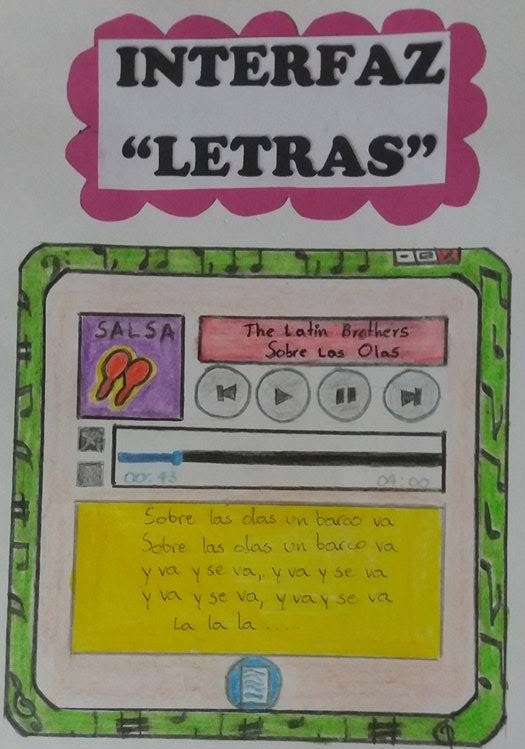 INTERFAZ
“LETRAS”
SALSA
The Latin Brothers
Sobre Las Olas
00:43
04:00
Sobre las olas un barco va
Sobre las olas un barco va
y va y se va, y va y se va
y va y se va, y va y se va
La la la .....